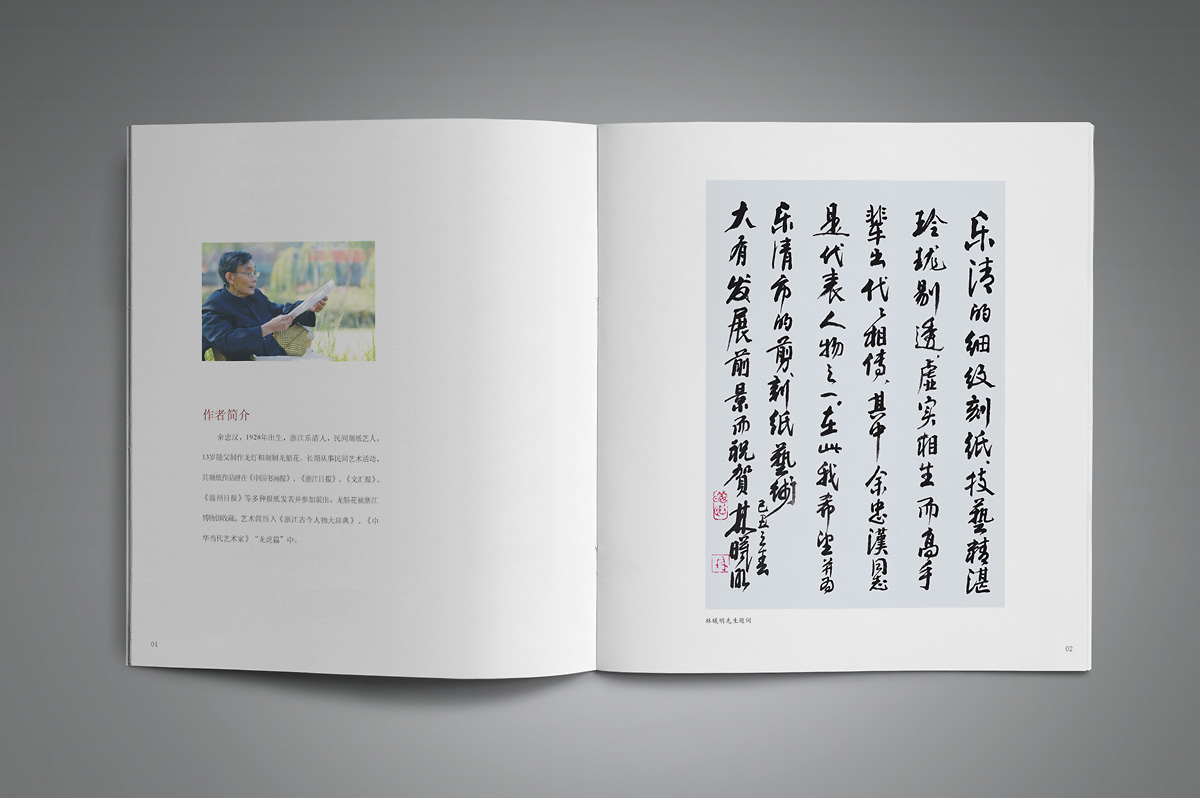 作者简介
余忠汉，1928年出生，浙江乐清人，民间刻纸艺人，
13岁随父制作龙灯和剪刻龙船花，长期从事民间艺术活动，
其刻纸作品曾在《中国书画报》、《浙江日报》、《文汇报》、
《温州日报》等多种报纸发表并参加展出，龙船花被浙江
博物馆收藏，艺术简历入《浙江古今人物大辞典》、《中
华当代艺术家》“龙虎篇”中。
01
乐清的细纹刻纸、技藝精湛
玲珑剔透、虚实相生而高手
辈出代々相傳、其中余忠漢同志
是代表人物之一、在此我希望并为
乐清市的剪、刻纸藝術
大有发展前景而祝贺 林曦明
己丑之春
林曦明先生题词
02